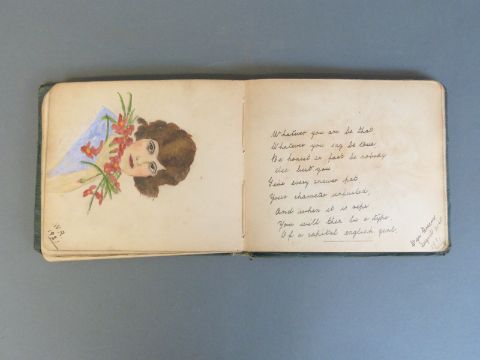 Whatever you are be that
Whatever you say be true
Be honest in fact be nobody
else but you
Give every answer pat
Your character unsuited
And when it is ripe
You will then be a type
Of a capital english girl.
1931